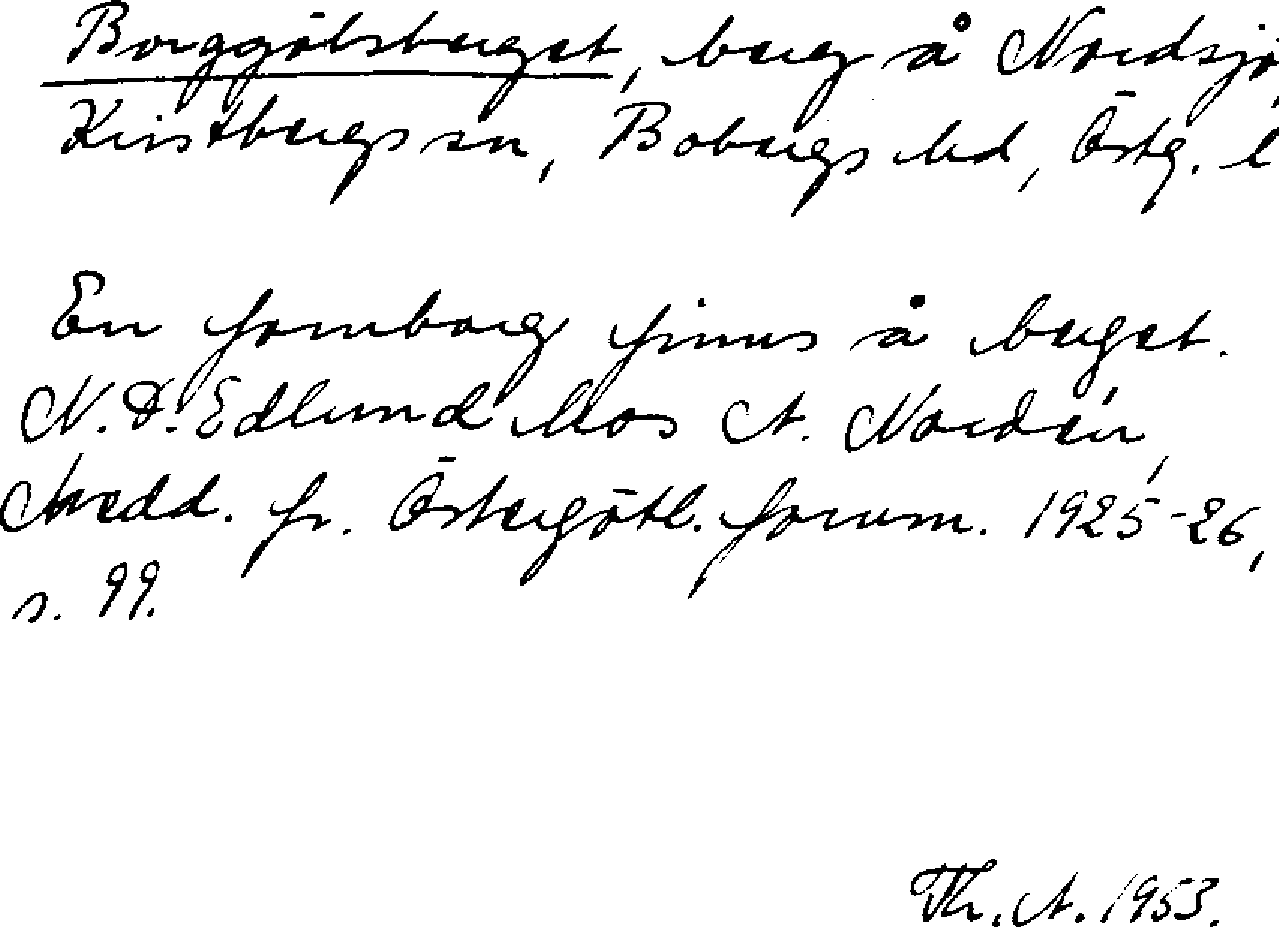 Borggölsberget, berg å Nordsjö
Kristbergs sn, Bobergs hd, Östg. l
En fornborg finns å berget.
N. D. Edlund hos A. Nordén,
Medd. fr. Östergötl. fornm. 1925-26,
s. 99.
Th. A. 1953.